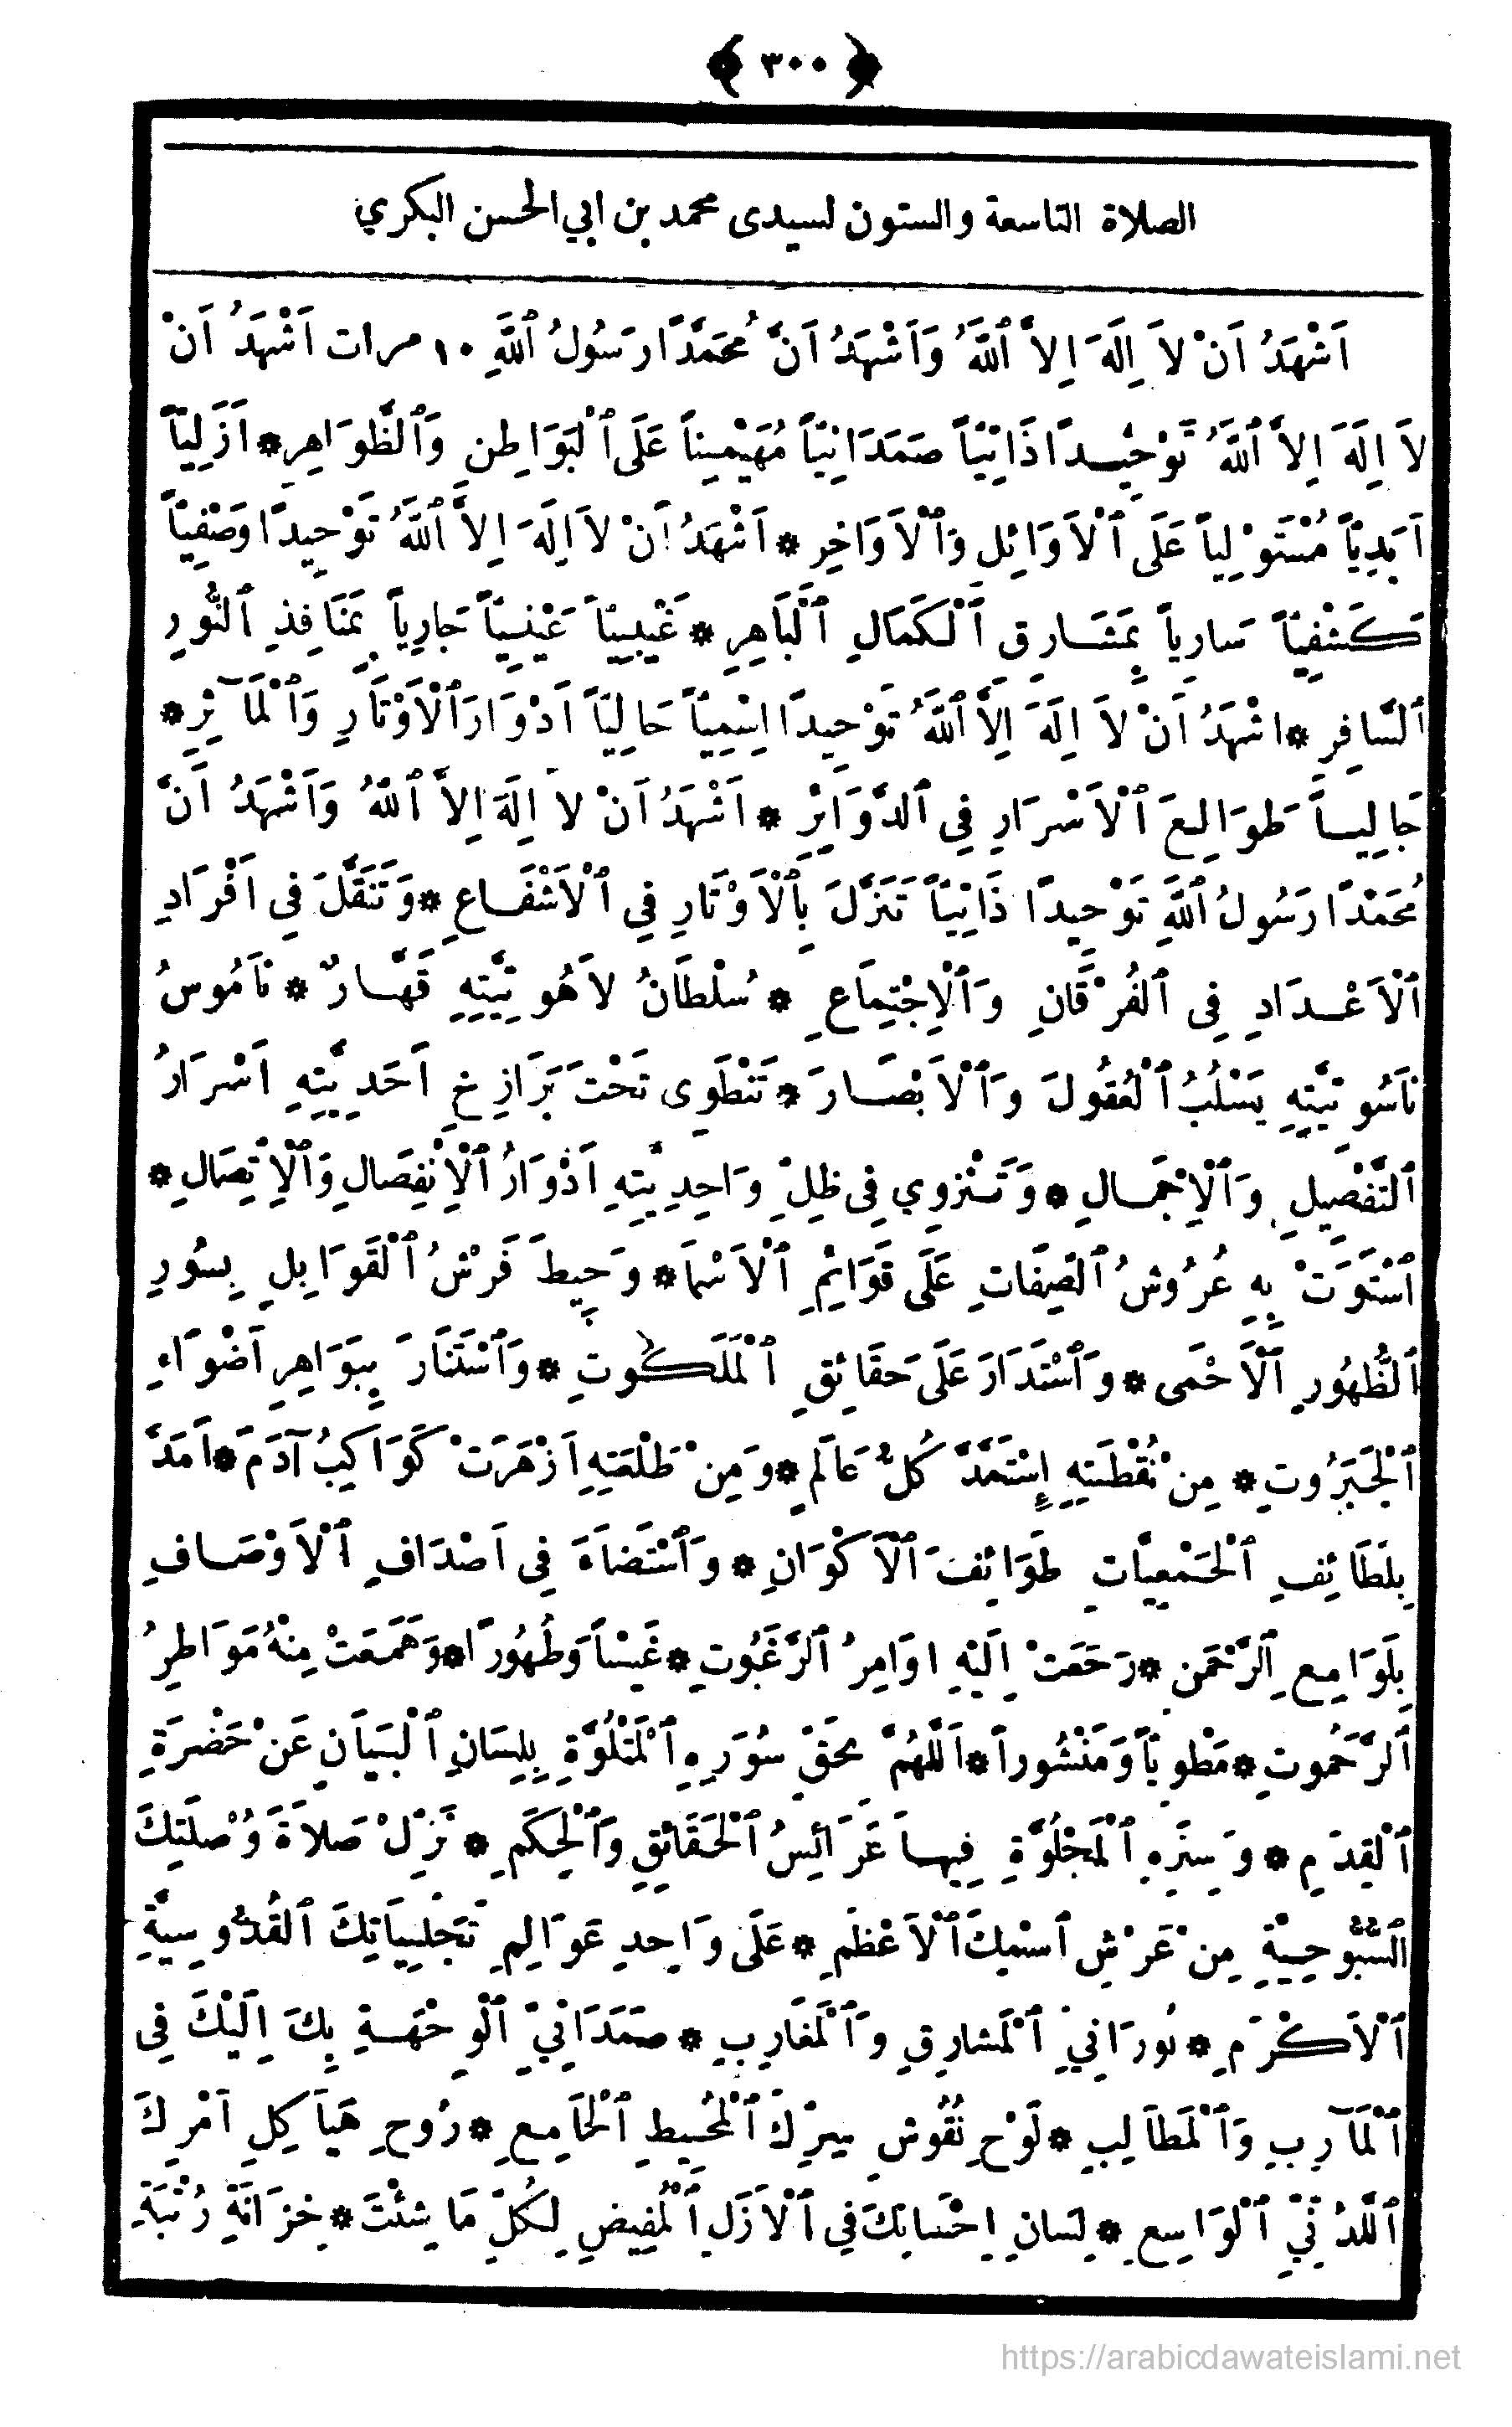 ﴿ ٣٠٠ ﴾
الصلاة التاسعة والستون لسيدى محمد بن ابي الحسن البكري
اَشْهَدُ اَنْ لاَ اِلَهَ اِلاَّ ٱللَّهُ وَاَشْهَدُ اَنَّ مُحَمَّدًا رَسُولُ ٱللَّهِ ١٠ مرات اَشْهَدُ اَنْ
لاَ اِلَهَ اِلاَّ ٱللَّهُ تَوْحِيدًا ذَاتِيّاً صَمَدَانِيّاً مُهَيْمِناً عَلَى ٱلْبَوَاطِنِ وَٱلظَّوَاهِرِ * اَزَلِيّاً
اَبَدِيّاً مُسْتَوْلِياً عَلَى ٱلْاَوَائِلِ وَٱلْاَوَاخِرِ * اَشْهَدُ اَنْ لاَ اِلَهَ اِلاَّ ٱللَّهُ تَوْحِيدًا وَصْفِيّاً
كَشْفِيّاً سَارِياً بِمَشَارِقِ ٱلْكَمَالِ ٱلْبَاهِرِ * غَيْبِيّاً عَيْنِيّاً جَارِياً بِمَنَافِذِ ٱلنُّورِ
ٱلسَّافِرِ * اشْهَدُ اَنْ لاَ اِلَهَ اِلاَّ ٱللَّهُ تَوْحِيدًا اِسْمِيّاً حَالِيّاً اَدْوَارَ ٱلْاَوْتَارِ وَٱلْمَآثِرِ *
جَالِيـاً طَوَالِعَ ٱلْاَسْرَارِ فِي ٱلدَّوَائِرِ * اَشْهَدُ اَنْ لاَ اِلَهَ اِلاَّ ٱللَّهُ وَاَشْهَدُ اَنَّ
مُحَمَّدًا رَسُولُ ٱللَّهِ تَوْحِيدًا ذَاتِيّاً تَنَزَّلَ بِٱلْاَوْتَارِ فِي ٱلْاَشْفَاعِ * وَتَنَقَّلَ فِي اَفْرَادِ
ٱلْاَعْدَادِ فِي ٱلْفُرْقَانِ وَٱلْاِجْتِمَاعِ * سُلْطَانُ لاَهُوتِيَّتِهِ قَهَّارٌ * نَامُوسُ
نَاسُوتِيَّتِهِ يَسْلُبُ ٱلْعُقُولَ وَٱلْاَبْصَارَ * تَنْطَوِى تَحْتَ بَرَازِخِ اَحَدِيَّتِهِ اَسْرَارُ
ٱلتَّفْصِيلِ وَٱلْاِجْمَالِ * وَتَنْزَوِي فِي ظِلِّ وَاحِدِيَّتِهِ اَدْوَارُ ٱلْاِنْفِصَالِ وَٱلْاِتِّصَالِ *
ٱسْتَوَتْ بِهِ عُرُوشُ ٱلصِّفَاتِ عَلَى قَوَائِمِ ٱلْاَسْمَا * وَحِيطَ فَرْشُ ٱلْقَوَابِلِ بِسُورِ
ٱلظُّهُورِ ٱلْاَحْمَى * وَٱسْتَدَارَ عَلَى حَقَائِقِ ٱلْمَلَكُوتِ * وَٱسْتَنَارَ بِبَوَاهِرِ اَضْوَاءِ
ٱلْجَبَرُوتِ * مِنْ نُقْطَتِهِ إِسْتَمَدَّ كُلُّ عَالَمٍ * وَمِنْ طَلْعَتِهِ اَزْهَرَتْ كَوَاكِبُ آدَمَ * اَمَدَّ
بِلَطَائِفِ ٱلْجَمْعِيَّاتِ طَوَائِفَ ٱلْاَكْوَانِ * وَٱسْتَضَاءَ فِي اَصْدَافِ ٱلْاَوْصَافِ
بِلَوَامِعِ ٱلرَّحْمَنِ * رَجَعَتْ اِلَيْهِ اوَامِرُ ٱلرَّغَبُوتِ * غَيْباً وَظُهُورًا * وَهَمَعَتْ مِنْهُ مَوَاطِرُ
ٱلرَّحَمُوتِ * مَطْوِيّاً وَمَنْشُوراً * اَللَّهُمَّ بِحَقِّ سُوَرِهِ ٱلْمَتْلُوَّةِ بِلِسَانِ ٱلْبَيَانِ عَنْ حَضْرَةِ
ٱلْقِدَمِ * وَسِيَرِهِ ٱلْمَجْلُوَّةِ فِيهَا عَرَائِسُ ٱلْحَقَائِقِ وَٱلْحِكَمِ * نَزِّلْ صَلاَةَ وُصْلَتِكَ
ٱلسُّبُّوحِيَّةِ مِنْ عَرْشِ ٱسْمِكَ ٱلْاَعْظَمِ * عَلَى وَاحِدِ عَوَالِمِ تَجَلِّيَاتِكَ ٱلْقُدُّوسِيَّةِ
ٱلْاَكْرَمِ * نُورَانِيِّ ٱلْمَشَارِقِ وَٱلْمَغَارِبِ * صَمَدَانِيِّ ٱلْوِجْهَةِ بِكَ اِلَيْكَ فِي
ٱلْمَآرِبِ وَٱلْمَطَالِبِ * لَوْحِ نُقُوشِ سِرِّكَ ٱلْمُحِيطِ ٱلْجَامِعِ * رُوحِ هَيَاكِلِ اَمْرِكَ
ٱللَّدُنِّيِّ ٱلْوَاسِعِ * لِسَانِ اِحْسَانِكَ فِي ٱلْاَزَلِ ٱلْمُفِيضِ لِكُلِّ مَا شِئْتَ * خِزَانَةِ رُتْبَةِ
https://arabicdawateislami.net